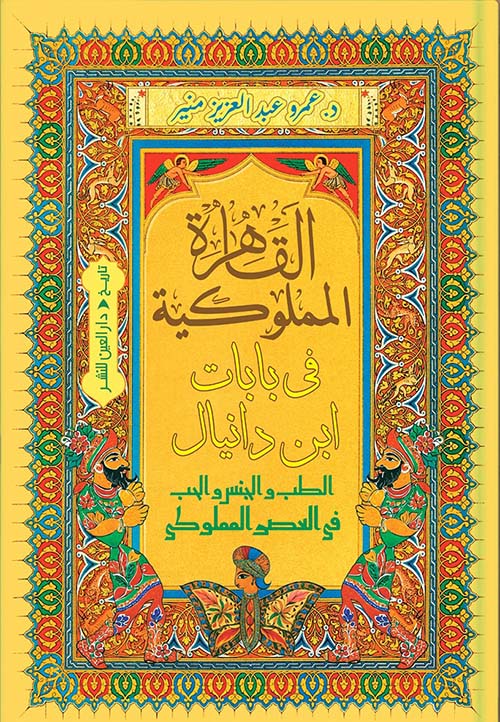 د. عمرو عبد العزيز منير
القاهرة
المملوكية
فى بابات
ابن دانيال
الطب والجنس والحب
في العصر المملوكي
تاريخ ◄ دار العين للنشر